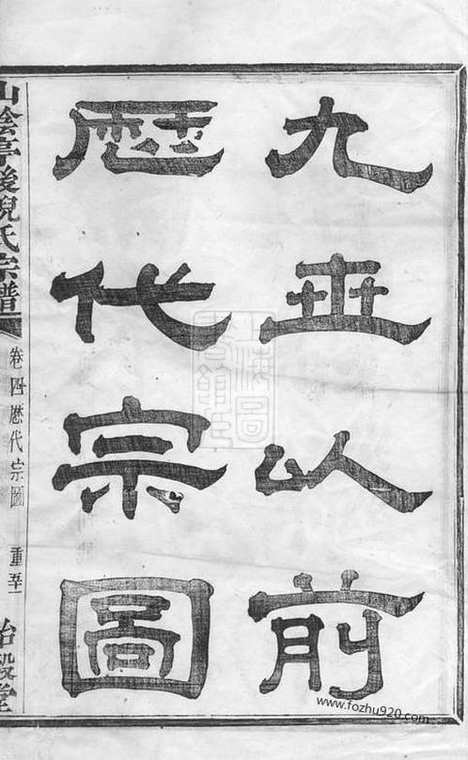 九世以前
歷代宗圖
山陰亭後倪氏宗譜
卷四歷代宗圖
重
穀堂
www.fozhu920.com